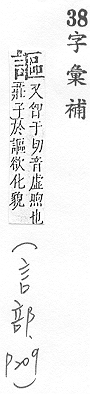 38字彙補
謳 又智于切音虛煦也
莊子於謳欲化貌
(言部,
P209)